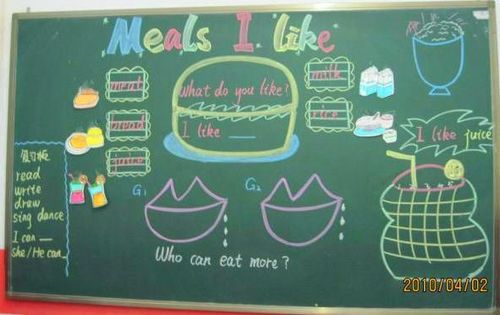 Meals I like
meat
bread
juice
What do you like?
I like ___
milk
rice
I like juice
read
write
draw
sing dance
I can __
She/He can_
G1
G2
Who can eat more?
2010/04/02